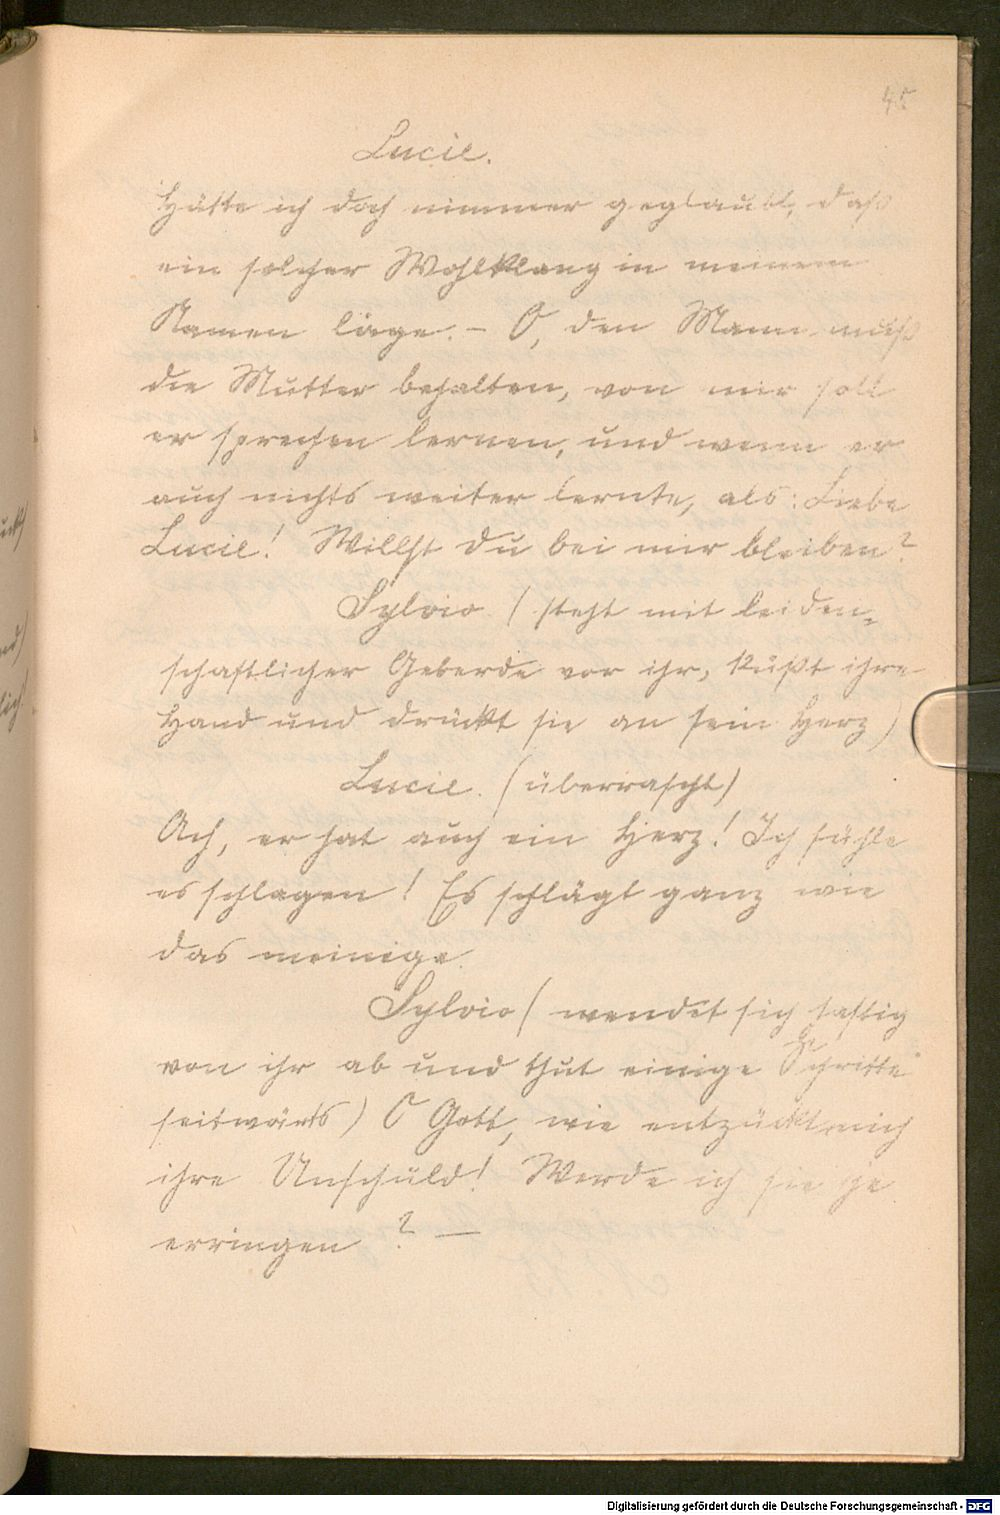 45
Lucie.
Hätte ich doch nimmer geglaubt, daß
ein solcher Wohlklang in meinem
Namen läge. – O, den Mann muß
die Mutter behalten, von mir soll
er sprechen lernen, und wenn er
auch nichts weiter lernte, als: Liebe
Lucie! Willst du bei mir bleiben?
Sylvio (steht mit leiden=
schaftlicher Geberde vor ihr, küßt ihre
Hand und drückt sie an sein Herz)
Lucie. (überrascht)
Ach, er hat auch ein Herz! Ich fühle
es schlagen! Es schlägt ganz wie
das meinige.
Sylvio (wendet sich hastig
von ihr ab und thut einige Schritte
seitwärts) O Gott, wie entzückt mich
ihre Unschuld! Werde ich sie je
erringen? —
Digitalisierung gefördert durch die Deutsche Forschungsgemeinschaft - DFG